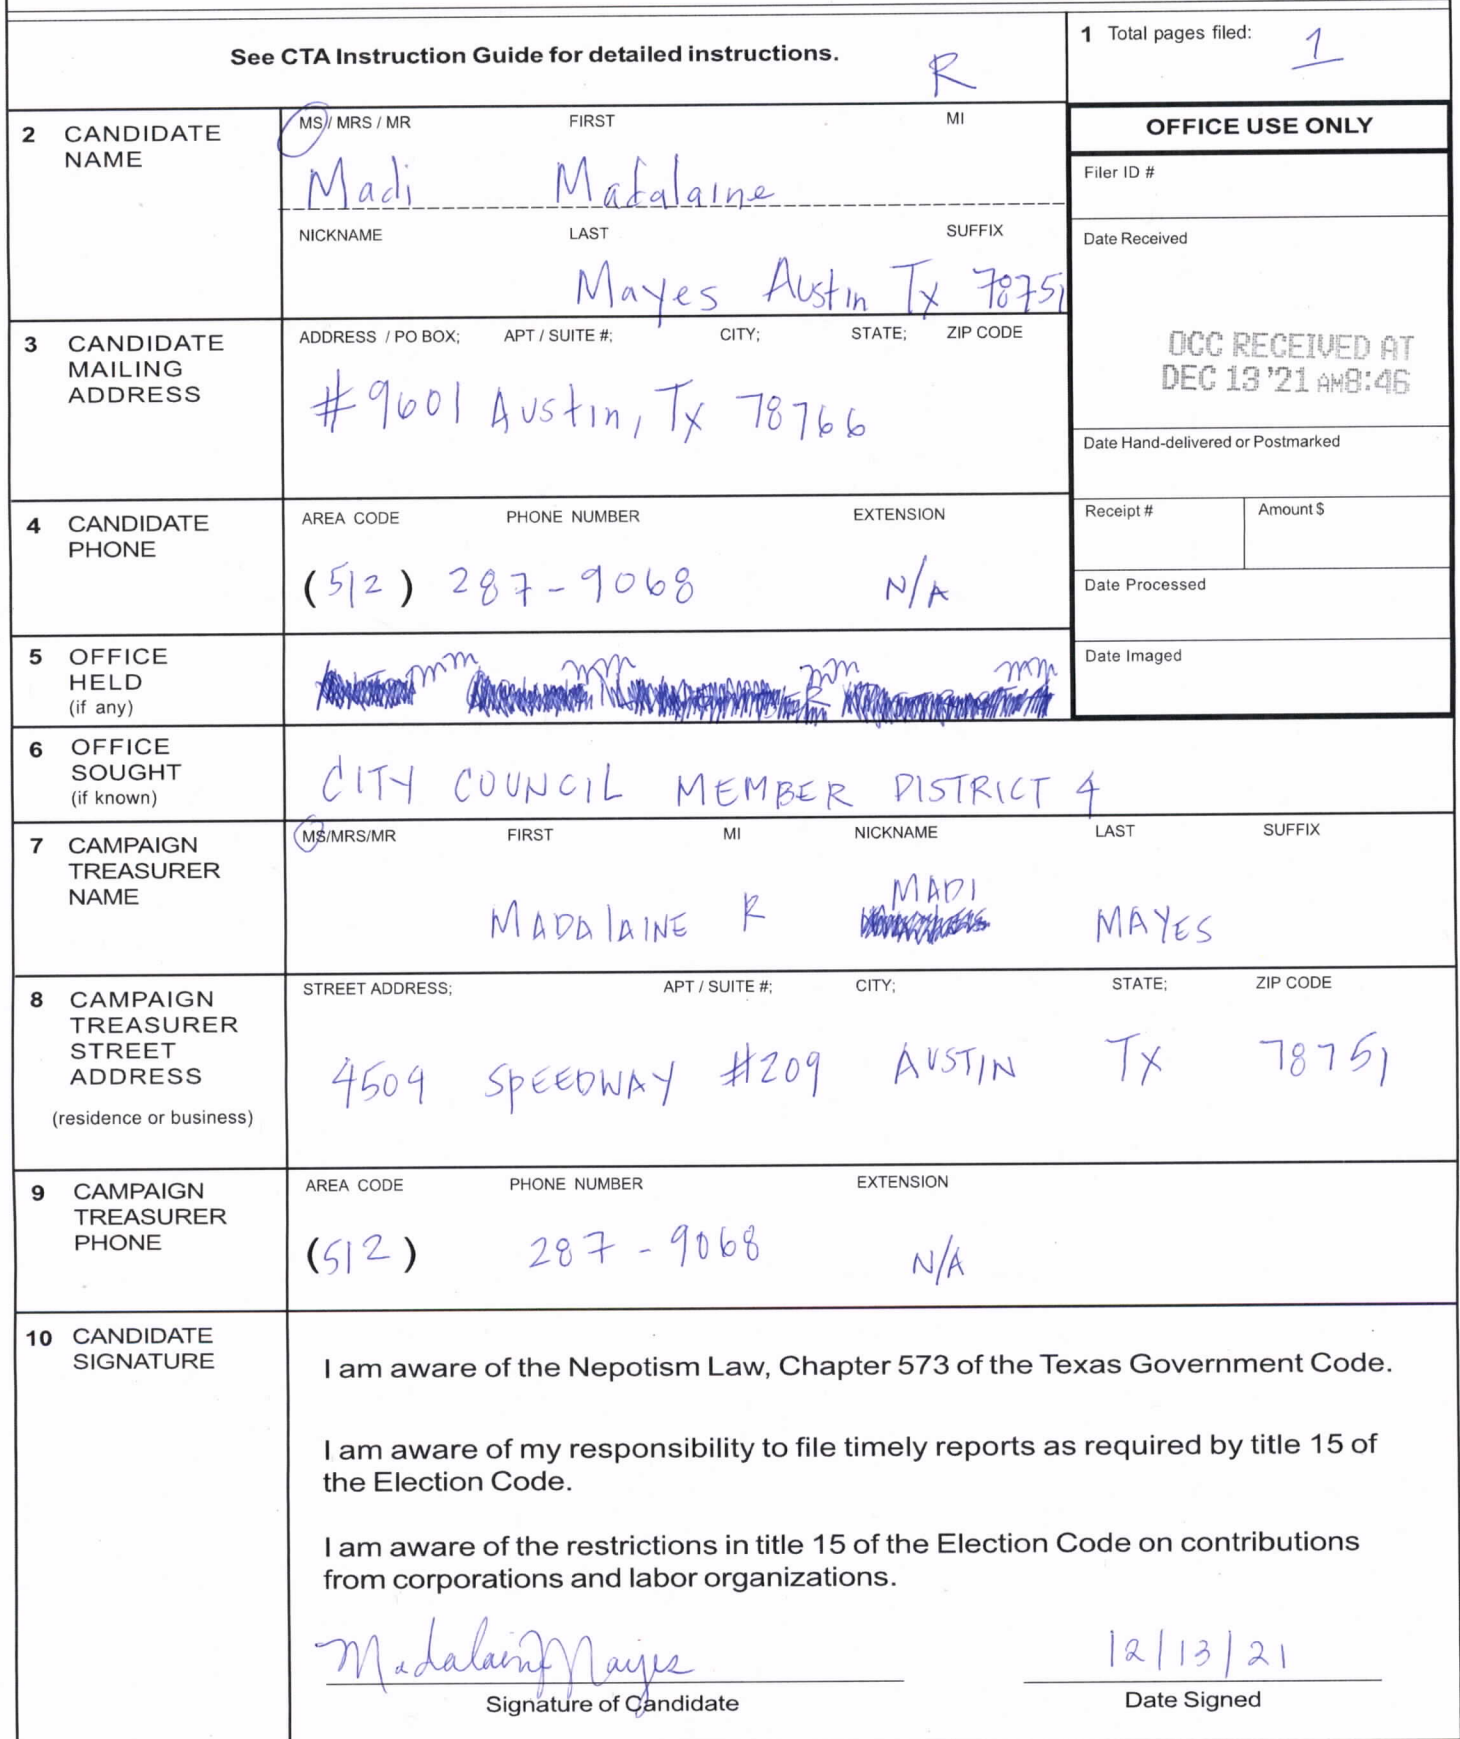 See CTA Instruction Guide for detailed instructions.
R
1 Total pages filed: 1
2 CANDIDATE NAME
MS / MRS / MR FIRST MI
Madi Madalaine
NICKNAME LAST SUFFIX
Mayes Austin Tx 78751
OFFICE USE ONLY
Filer ID #
Date Received
OCC RECEIVED AT
DEC 13 '21 AM8:46
Date Hand-delivered or Postmarked
Receipt # Amount $
Date Processed
Date Imaged
3 CANDIDATE MAILING ADDRESS
ADDRESS / PO BOX; APT / SUITE #; CITY; STATE; ZIP CODE
#9601 Austin, Tx 78766
4 CANDIDATE PHONE
AREA CODE PHONE NUMBER EXTENSION
(512) 287-9068 N/A
5 OFFICE HELD (if any)
mm mm mm mm
6 OFFICE SOUGHT (if known)
CITY COUNCIL MEMBER DISTRICT 4
7 CAMPAIGN TREASURER NAME
MS/MRS/MR FIRST MI NICKNAME LAST SUFFIX
MADALAINE R MADI MAYES
8 CAMPAIGN TREASURER STREET ADDRESS
(residence or business)
STREET ADDRESS; APT / SUITE #; CITY; STATE; ZIP CODE
4509 SPEEDWAY #209 AUSTIN TX 78751
9 CAMPAIGN TREASURER PHONE
AREA CODE PHONE NUMBER EXTENSION
(512) 287-9068 N/A
10 CANDIDATE SIGNATURE
I am aware of the Nepotism Law, Chapter 573 of the Texas Government Code.
I am aware of my responsibility to file timely reports as required by title 15 of
the Election Code.
I am aware of the restrictions in title 15 of the Election Code on contributions
from corporations and labor organizations.
Madalaine Mayes 12/13/21
Signature of Candidate Date Signed